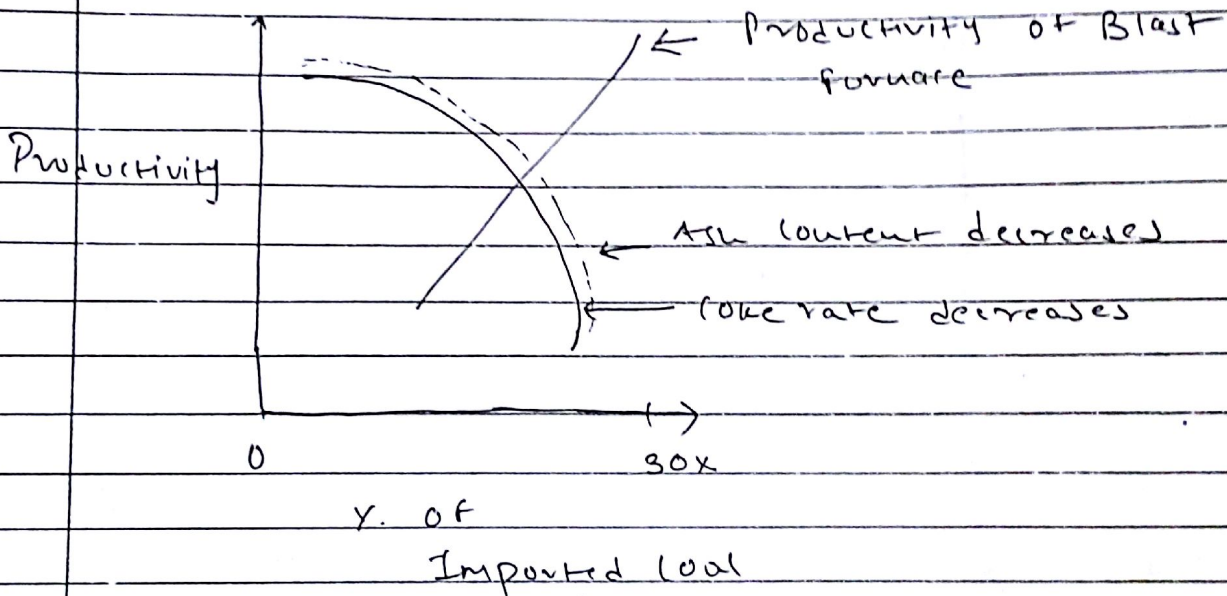 Productivity of Blast
furnace
Productivity
Ash content decreases
Coke rate decreases
0
30%
% of
Imported Coal